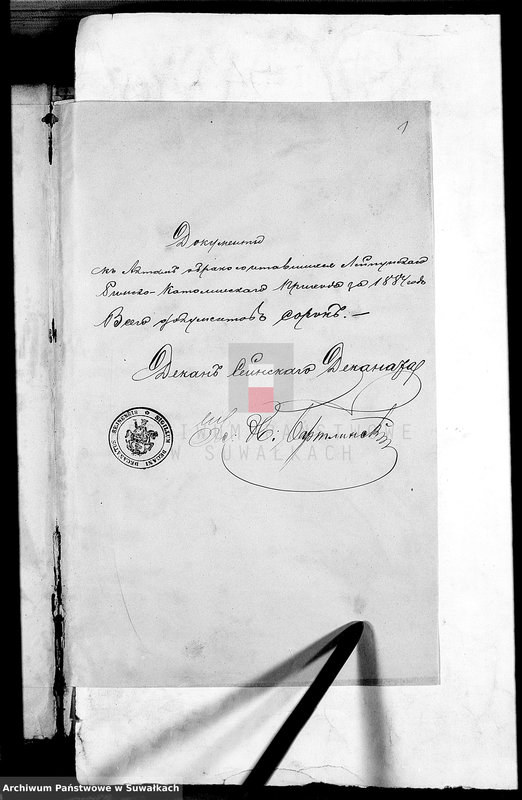 1
Документы
къ Актамъ бракосочитавшихся Лейпунскаго
Римско-Католическаго Прихода за 1884 годъ
Всего документовъ сорокъ.—
Деканъ Сейнскаго Деканата
Кс. К.
SIGILLUM DECANI DECANATUS SEJNENSIS
ARCHIWUM PAŃSTWOWE
W SUWAŁKACH
Archiwum Państwowe w Suwałkach